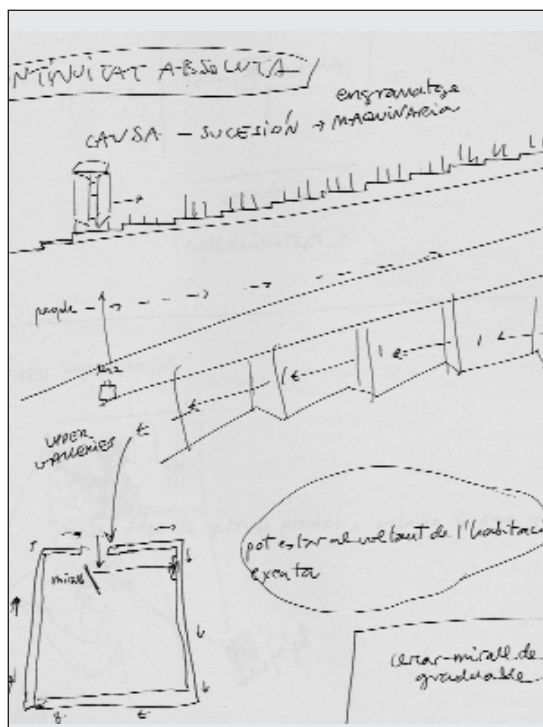 NTINUITAT ABSOLUTA
engranatge
CAUSA – SUCESIÓN → MAQUINARIA
people
UPPER
GALLERIES
t
t
t
mirall
pot estar al voltant de l'habitaci
exenta
mirall de
graduable
t